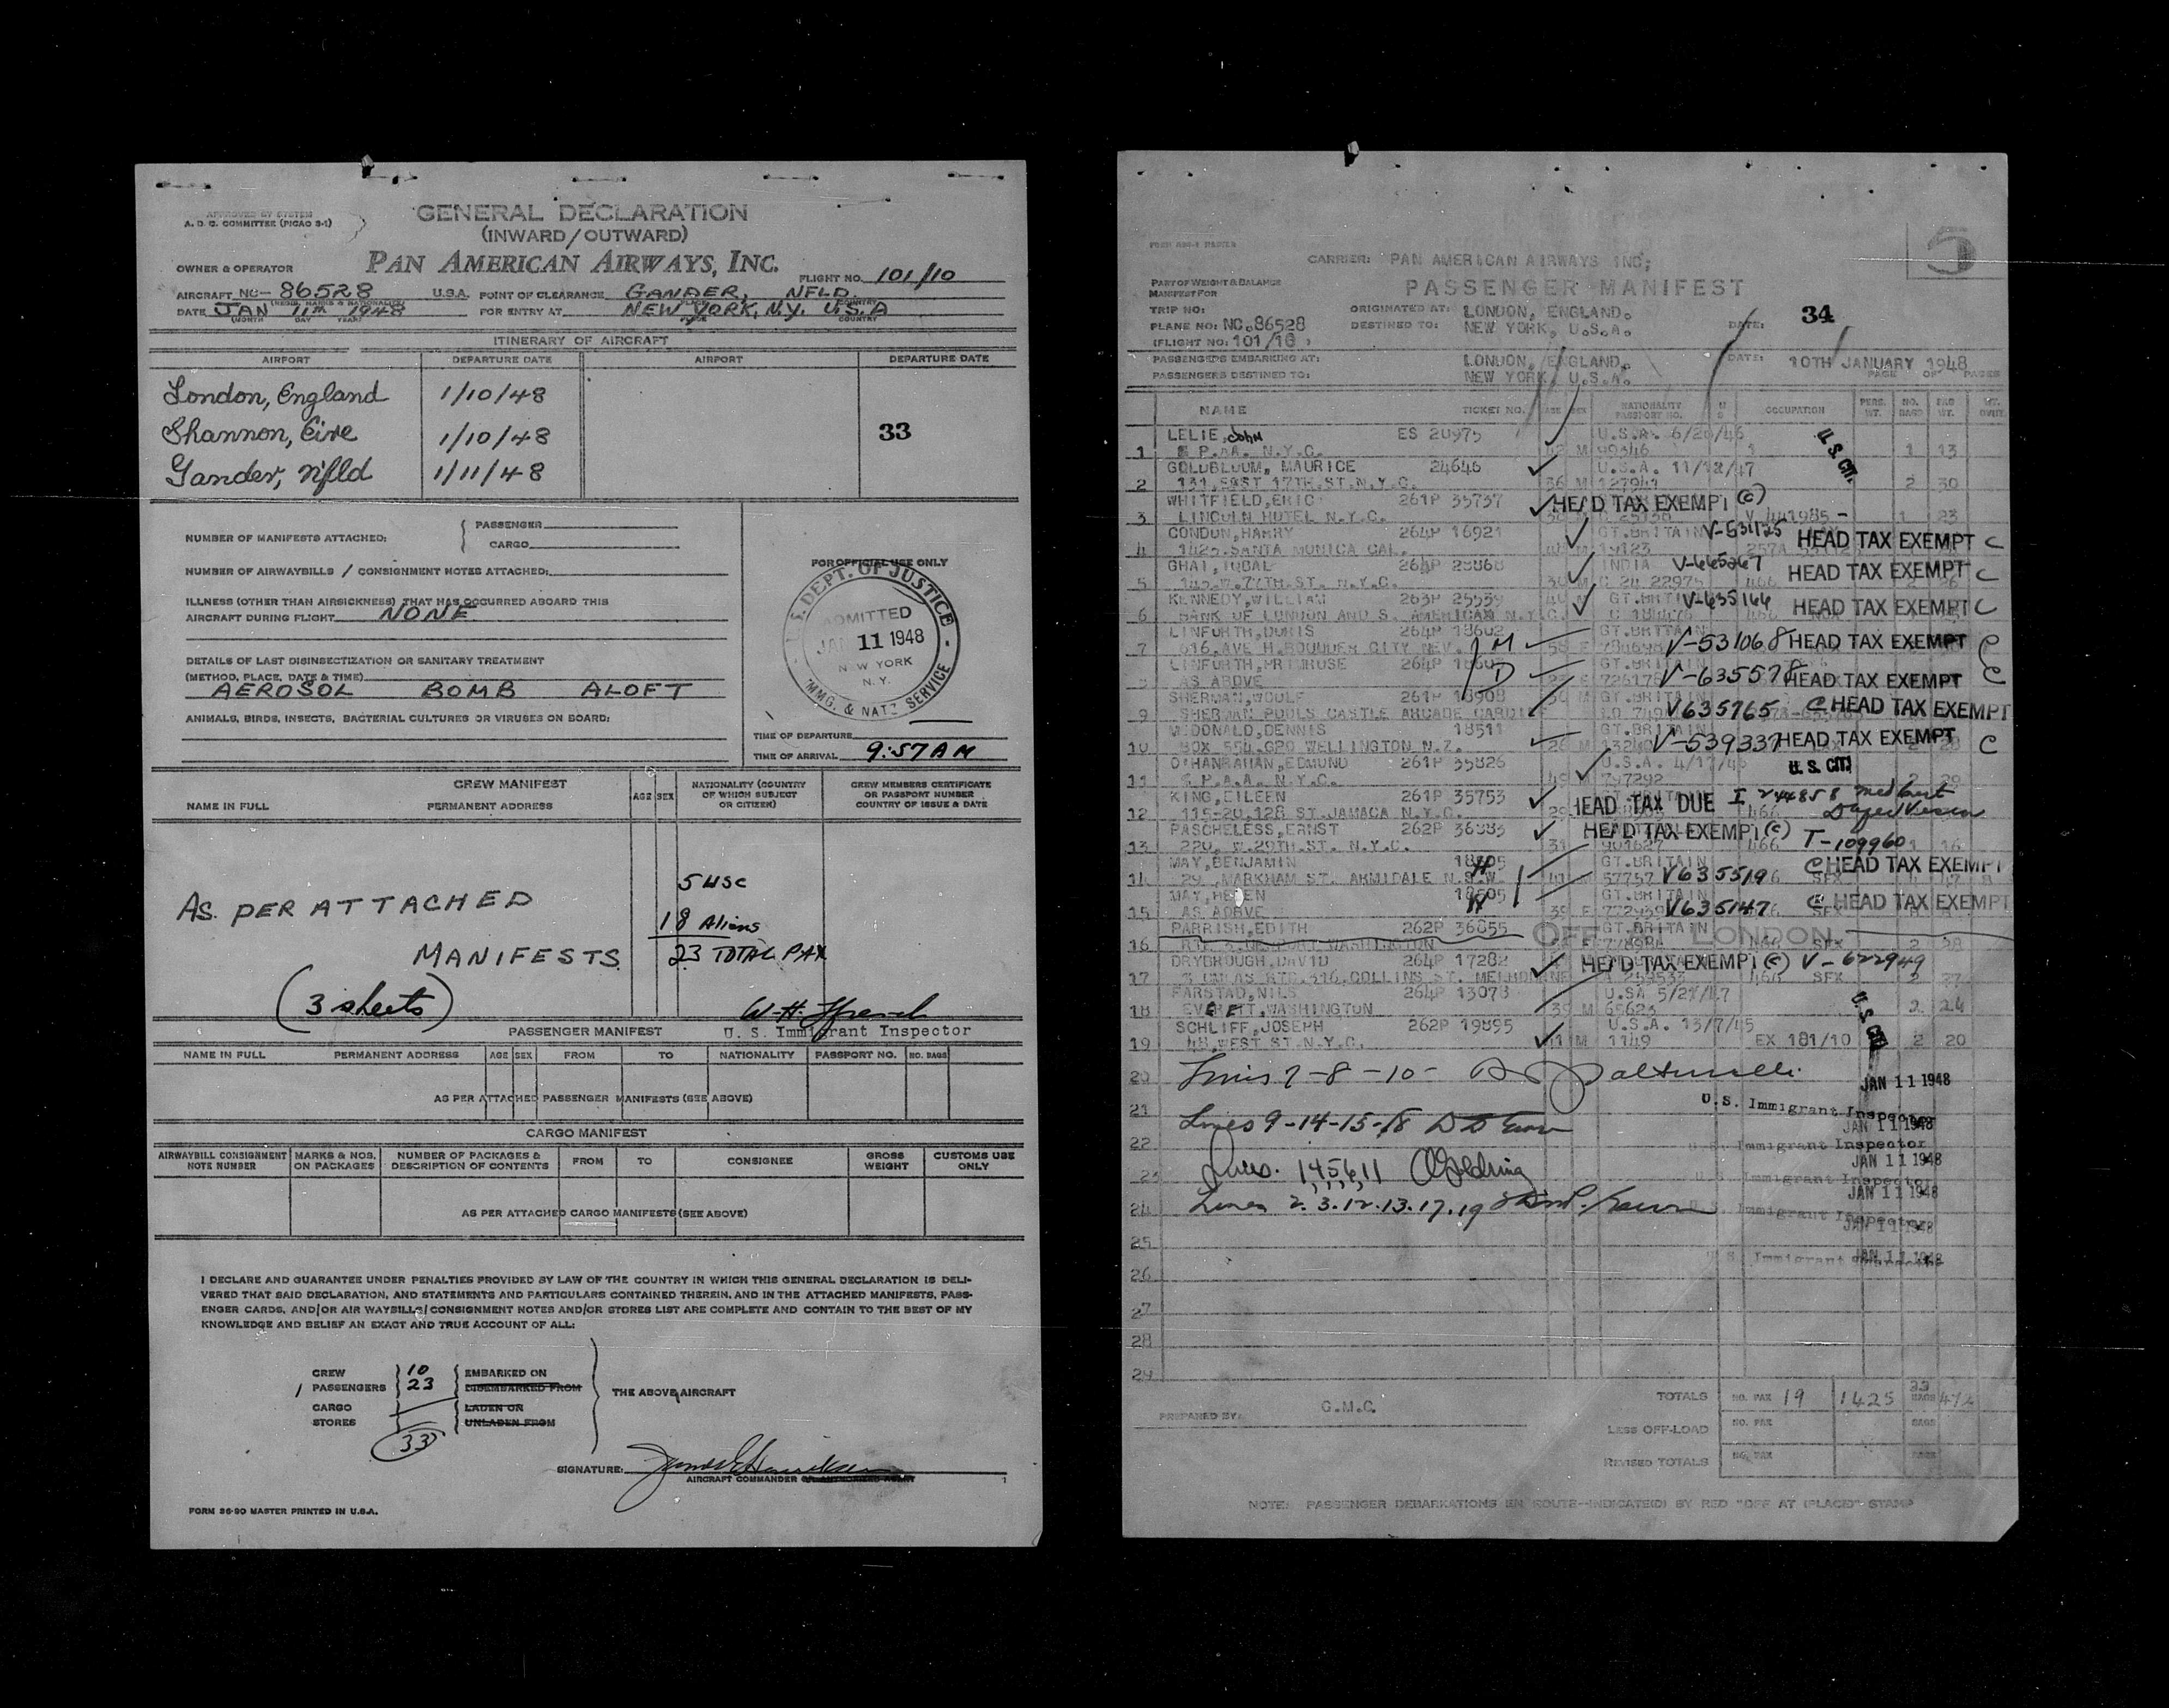 APPROVED BY SYSTEM
A. D. C. COMMITTEE (PICAO 3-1)
GENERAL DECLARATION
(INWARD/OUTWARD)
OWNER & OPERATOR PAN AMERICAN AIRWAYS, INC. FLIGHT NO. 101/10
AIRCRAFT NC- 86528 U.S.A. POINT OF CLEARANCE GANDER, NFLD.
(REGIS. MARKS & NATIONALITY) PLACE COUNTRY
DATE JAN 11th 1948 FOR ENTRY AT NEW YORK, N.Y. U.S.A
(MONTH DAY YEAR) PLACE COUNTRY
ITINERARY OF AIRCRAFT
AIRPORT DEPARTURE DATE AIRPORT DEPARTURE DATE
London, England 1/10/48
Shannon, Eire 1/10/48 33
Gander, Nfld 1/11/48
NUMBER OF MANIFESTS ATTACHED: { PASSENGER
CARGO
NUMBER OF AIRWAYBILLS / CONSIGNMENT NOTES ATTACHED:
ILLNESS (OTHER THAN AIRSICKNESS) THAT HAS OCCURRED ABOARD THIS
AIRCRAFT DURING FLIGHT NONE
DETAILS OF LAST DISINSECTIZATION OR SANITARY TREATMENT
(METHOD, PLACE, DATE & TIME)
AEROSOL BOMB ALOFT
ANIMALS, BIRDS, INSECTS, BACTERIAL CULTURES OR VIRUSES ON BOARD:
FOR OFFICIAL USE ONLY
U.S. DEPT. OF JUSTICE
ADMITTED
JAN 11 1948
NEW YORK
N. Y.
IMMG. & NATZ SERVICE
TIME OF DEPARTURE
TIME OF ARRIVAL 9:57 AM
CREW MANIFEST
NAME IN FULL PERMANENT ADDRESS AGE SEX NATIONALITY (COUNTRY OF WHICH SUBJECT OR CITIZEN) CREW MEMBERS CERTIFICATE OR PASSPORT NUMBER COUNTRY OF ISSUE & DATE
5 USC
AS PER ATTACHED 18 Aliens
MANIFESTS 23 TOTAL PAX
(3 sheets)
PASSENGER MANIFEST U. S. Immigrant Inspector
NAME IN FULL PERMANENT ADDRESS AGE SEX FROM TO NATIONALITY PASSPORT NO. NO. BAGS
AS PER ATTACHED PASSENGER MANIFESTS (SEE ABOVE)
CARGO MANIFEST
AIRWAYBILL CONSIGNMENT NOTE NUMBER MARKS & NOS. ON PACKAGES NUMBER OF PACKAGES & DESCRIPTION OF CONTENTS FROM TO CONSIGNEE GROSS WEIGHT CUSTOMS USE ONLY
AS PER ATTACHED CARGO MANIFESTS (SEE ABOVE)
I DECLARE AND GUARANTEE UNDER PENALTIES PROVIDED BY LAW OF THE COUNTRY IN WHICH THIS GENERAL DECLARATION IS DELI-
VERED THAT SAID DECLARATION, AND STATEMENTS AND PARTICULARS CONTAINED THEREIN, AND IN THE ATTACHED MANIFESTS, PASS-
ENGER CARDS, AND/OR AIR WAYBILLS/CONSIGNMENT NOTES AND/OR STORES LIST ARE COMPLETE AND CONTAIN TO THE BEST OF MY
KNOWLEDGE AND BELIEF AN EXACT AND TRUE ACCOUNT OF ALL:
CREW 10 EMBARKED ON
PASSENGERS 23 DISEMBARKED FROM THE ABOVE AIRCRAFT
CARGO LADEN ON
STORES UNLADEN FROM
33
SIGNATURE:
AIRCRAFT COMMANDER OR AUTHORISED AGENT
FORM 36-90 MASTER PRINTED IN U.S.A.
5
CARRIER: PAN AMERICAN AIRWAYS INC;
PART OF WEIGHT & BALANCE
MANIFEST FOR
PASSENGER MANIFEST
TRIP NO: ORIGINATED AT: LONDON, ENGLAND. DATE: 34
PLANE NO: NC.86528 DESTINED TO: NEW YORK, U.S.A.
(FLIGHT NO: 101/10 )
PASSENGERS EMBARKING AT: LONDON, ENGLAND. DATE: 10TH JANUARY 1948
PASSENGERS DESTINED TO: NEW YORK, U.S.A. PAGE OF PAGES
NAME TICKET NO. AGE SEX NATIONALITY PASSPORT NO. OCCUPATION PERS. WT. NO. BAGS BAG WT. WT. OVER
LELIE, John ES 20975 U.S.A. 6/20/46 U. S. CIT.
1 P.AA. N.Y.C. 42 M 99346 1 13
GOLDBLOUM, MAURICE 24646 U.S.A. 11/12/47
2 131, EAST 17TH.ST.N.Y.C. 36 M 127941 2 30
WHITFIELD, ERIC 261P 35737 HEAD TAX EXEMPT (C)
3 LINCOLN HOTEL N.Y.C. V 441985 - 1 23
CONDON, HARRY 264P 16921 GT.BRITAIN V-531125 HEAD TAX EXEMPT C
4 1425. SANTA MONICA CAL. 19123
GHAI, IQBAL 264P 28868 INDIA V-665267 HEAD TAX EXEMPT C
5 145.W.77TH.ST. N.Y.C. 30 M C 24 22975 466 26
KENNEDY, WILLIAM 263P 25539 GT.BRITAIN V-635144 HEAD TAX EXEMPT C
6 BANK OF LONDON AND S. AMERICAN N.Y.C.
LINFORTH, DORIS 264P 18602 M GT.BRITAIN V-531068 HEAD TAX EXEMPT C
7 616, AVE H.BOUNDER CITY NEV. 58 F
LINFORTH, PRIMROSE 264P D GT.BRITAIN V-635578 HEAD TAX EXEMPT C
AS ABOVE
SHERMAN, WOOLF 261P 18908 M GT.BRITAIN
9 SHERMAN POOLS CASTLE ARCADE CARDIFF V635765 C HEAD TAX EXEMPT
MCDONALD, DENNIS 18511 GT.BRITAIN
10 BOX 554.GPO WELLINGTON N.Z. 26 M V-539337 HEAD TAX EXEMPT C
O'HANRAHAN, EDMUND 261P 35826 U.S.A. 4/17/46 U. S. CIT
11 P.A.A. N.Y.C. 49 M 797292 2 20
KING, EILEEN 261P 35753 HEAD TAX DUE I 244858
12 115-20,128 ST.JAMACA N.Y.C. 29 466
PASCHELESS, ERNST 262P 36883 HEAD TAX EXEMPT (C) T-109960
13 220, W.29TH.ST. N.Y.C. 31 901627 466 1 16
MAY, BENJAMIN 18505 H GT.BRITAIN C HEAD TAX EXEMPT
14 29 ,MARKHAM ST. ARMIDALE N.S.W. 41 M 57757 V635519
MAY, HELEN 18505 W GT.BRITAIN
15 AS ABOVE 39 F 772939 V635147 C HEAD TAX EXEMPT
PARRISH, EDITH 262P 36855 GT.BRITAIN OFF LONDON
16 RTE 3, NEWPORT WASHINGTON 466 SFX 2 28
DRYBROUGH, DAVID 264P 17282 HEAD TAX EXEMPT (C) V-622949
17 COLLINS ST. MELBOURNE 466 SFX 2 27
FARSTAD, NILS 264P 13078 U.SA 5/27/47 U. S. CIT.
18 EVERETT, WASHINGTON 39 M 65623 2 24
SCHLIFF, JOSEPH 262P 19895 U.S.A. 13/7/45
19 48, WEST ST.N.Y.C. 41 M 1149 EX 181/10 2 20
20 Lines 7-8-10- JAN 11 1948
21 U.S. Immigrant Inspector
Lines 9-14-15-18 JAN 11 1948
22 U.S. Immigrant Inspector
JAN 11 1948
23 Lines. 1,4,5,6,11 U.S. Immigrant Inspector
JAN 11 1948
24 Lines 2.3.12.13.17.19 U.S. Immigrant Inspector
JAN 11 1948
25
U.S. Immigrant JAN 11 1948
26
27
28
29
TOTALS NO. PAX 19 1425 33 BAGS 472
PREPARED BY: G.M.C.
LESS OFF-LOAD NO. PAX BAGS
REVISED TOTALS NO. PAX BAGS
NOTE: PASSENGER DEBARKATIONS EN ROUTE-INDICATED BY RED "OFF AT (PLACE)" STAMP